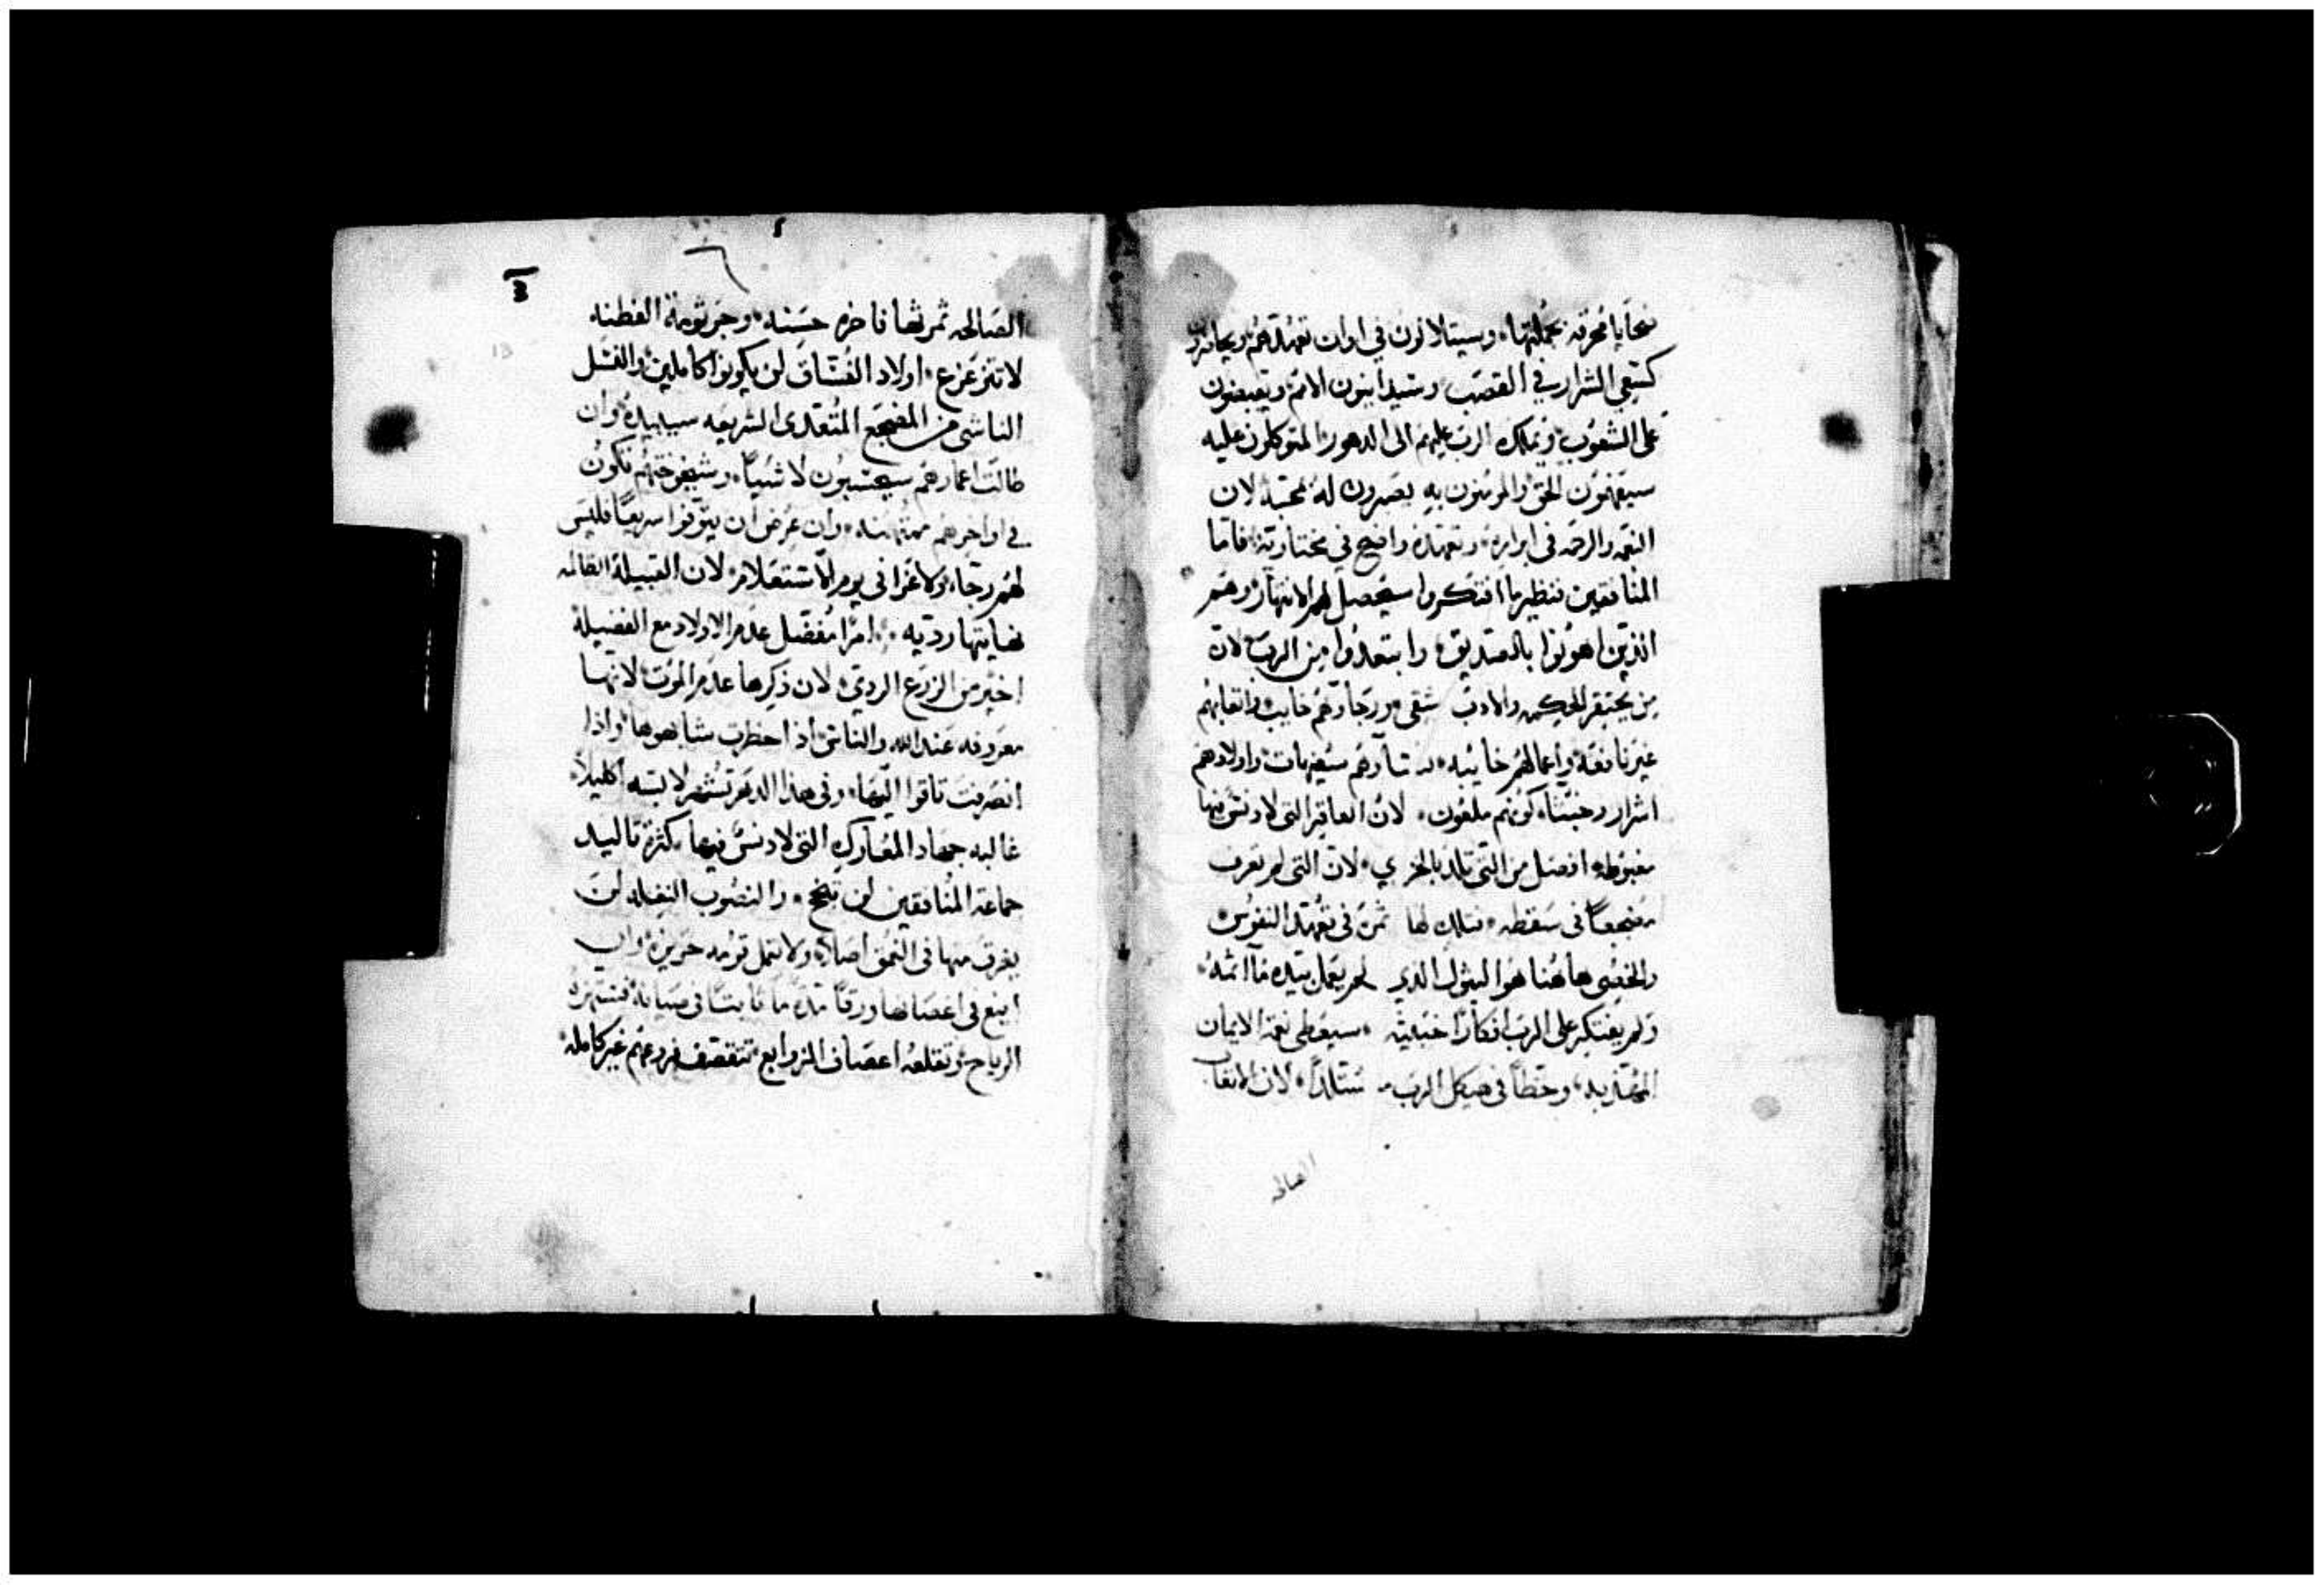 ضحايا محرقه بجملتها، وسيتلالون في اوان تعهدهم، ويحاضرون
كسعي الشرار في القصب، وسيدانيون الامم، ويقبضون
على الشعوب، ويملك الرب عليهم الى الدهور، المتوكلون عليه
سيفهمون الحق، والمومنون به يصبرون له بمحبة، لان
النعمه والرحمه في ابراره، وتعهده واضح في مختاريه، فاما
المنافقين فنظير ما افتكروا سيحصل لهم الانتهار، وهم
الذين اهونوا بالصديق، وابتعدوا من الرب، لان
من يحتقر الحكمه والادب شقي، ورجاوهم خايب، واتعابهم
غير نافعة، واعمالهم خايبه، نساوهم سفيهات، واولادهم
اشرار وخبثاء، كونهم ملعون، لان العاقر التي لا دنس فيها
مغبوطه، افضل من التي تلد بالخزي، لان التي لم تعرف
مضجعاً في سقطه، فتلك لها ثمن في تعهد النفوس
والخصي هاهنا هوا البثول الذي لم يعمل بيده مآثمة،
ولم يفتكر على الرب افكارًا خبيثه، سيعطى نعمة الايمان
المهذبه، وحظاً في هيكل الرب مستلذاً، لان الاتعاب
الصالحه
٦
الصالحه ثمرتها فاخره حسنه، وجرثومة الفطنه
لا تتزعزع، اولاد الفساق لن يكونوا كاملين، والنسل
الناشى من المضجع المتعدى الشريعه سيبيده، وان
طالت اعمارهم سيحتسبون لا شيئاً، وشيخوختهم تكون
في اواخرهم ممتهنه، وان عرض ان يتوفوا سريعاً فليس
لهم رجاء، ولا عزا في يوم الاستعلام، لان القبيلة الظالمه
نهايتها رديه، امرًا مفضل عدم الاولاد مع الفضيلة
اخير من الزرع الردي، لان ذكرها عدم الموت، لانها
معروفه عند الله والناس، اذا حظرت شابهوها، واذا
انصرفت تاقوا اليها، وفي هذا الدهر تشهر لابسه اكليلاً،
غالبه جهاد المعارك التي لا دنس فيها، كثرة تاليد
جماعة المنافقين لن تنجح، والنصوب النغله لن
يغرق منها في العمق اصلاً، ولا تعمل قرمه حريزه، وان
اينع في اغصانها ورقاً مدة ما ثابتاً في صيانة، فستهزه
الرياح، وتقلعه اعصاف الزوابع، تنقصف فروعهم غير كامله،